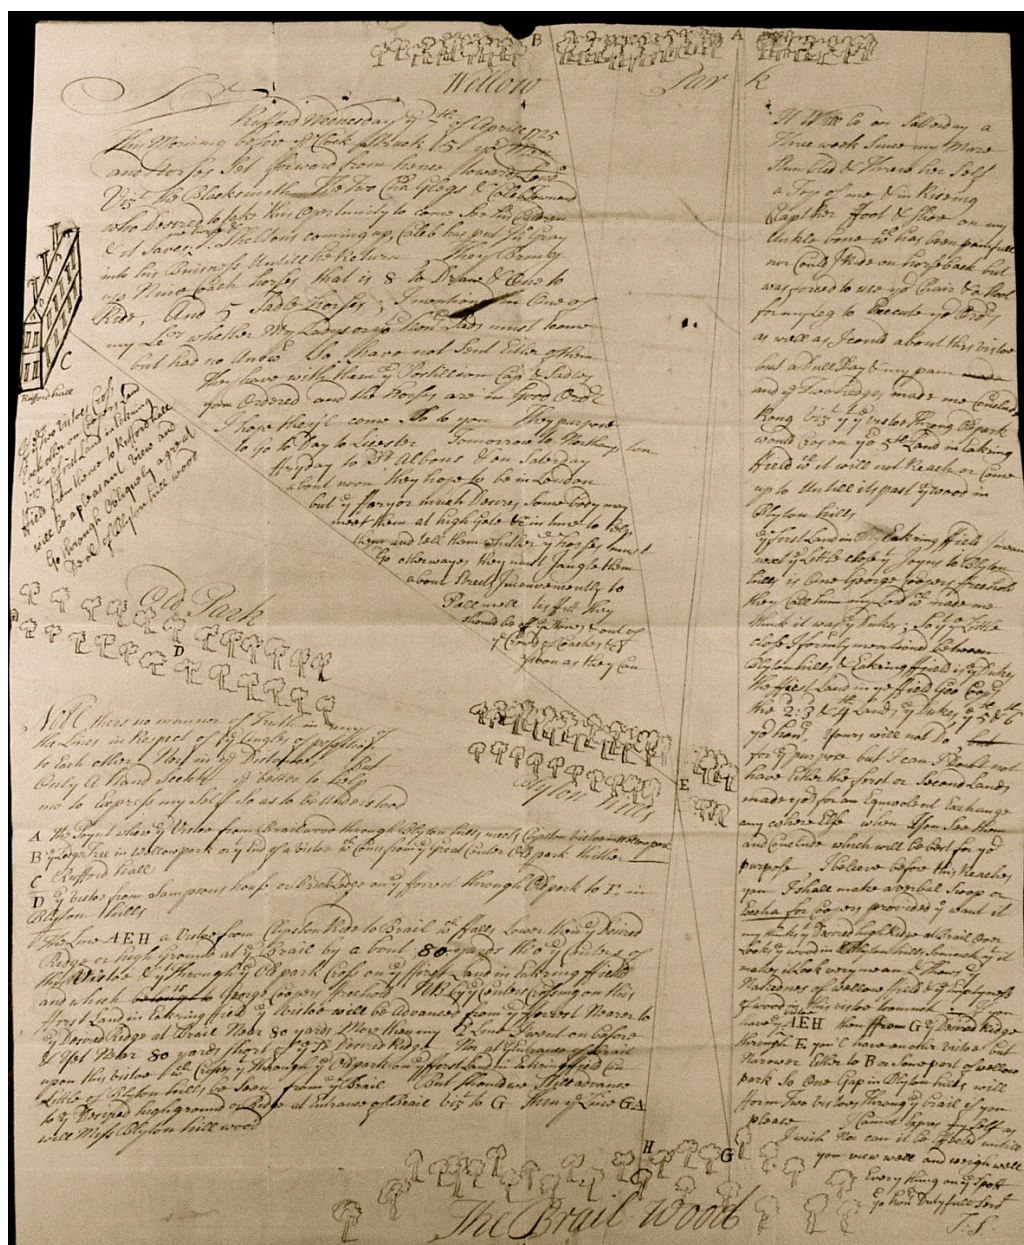 B A
Wellow Park
Sr
Rufford Wednesday ye th of Aprill 1725
This Morning before ye Clock Struck (5) ye Men
and Horses Set forward from hence towards
Vizt the Blacksmith the Two Cha Gleggs & Caleb
who Desired to take this Opertunity to come See his Children
& it Saves Sheltons coming up, Caleb has put Gray
into his Buisness, Untill he Return, They Bring
up Nine Coach horses that is 8 to Draw & One to
Ride, And 5 Sadle Horses; in One of
my Lrs whether My Ladys or ye Honl Lady must come
but had no Answr So I have not Sent Either of them
They have with them ye Postillion Cap & Sadles
you Ordered and the Horses are in Good Ordr
I hope they'l come So to you They purpose
to go to Day to Liester Tomorrow to Northampton
ffryday to St Albons & on Saterday
about noon they hope to be in London
but ye ffaryor much Desires Some body may
meet them at high Gate &c in time to help
them and tell them whither ye horses must
Go otherwayes they must Jangle them
about Streets Inconveniently to
Pellmell tis fitt they
should be of ye Stones & out of
ye Croud of Coaches &c
Assoon as they Can
C
Rufford hall
These two Vistoes Cross
Each other on Coopers Land
vizt ye first Land in Eakring
ffield from thence to Rufford hall
will be a pleasant View and
Go through Obliquely a great
deal of Blyton hill wood
Old Park
D
Note theres no manner of Truth in any of
the Lines in Respect of ye Angles of position
to Each other Nor in ye Distances, but
Only A hand Sectch ye better to help
me to Express my Self So as to be Understood
Blyton hills
E
A the Poynt where ye Vistoe from Brailwood through Blyton hills meets Clipston Vistoe in Wellow park
B ye Lodge Tree in Wellow park or ye End of a Vistoe wch Coms from ye great Center Old park thither
C Rufford hall
D ye Vistoe from Sampsons house or Brick Lodge on ye fforrest through Old park to E in
Blyton hills
The Line AEH a Vistoe from Clipston Ride to Brail wch ffalls Lower then ye Desired
Ridge or high Ground at ye Brail by a bout 80 yards tho ye Centers of
this Vistoe & ye Through ye Old park Cross on ye ffirst Land in Eakring ffield
and which is George Coopers ffreehold NB by ye Centers Crossing on this
ffirst Land in Eakring field ye Vistoe will be Advanced from ye fforrest Nearer to
ye Desired Ridge at Brail Near 80 yards More then my Line I went on before
& Yet Near 80 yards short of ye Sd Desired Ridge Nor at ye Entrance of Brail
upon this Vistoe wch Crosses ye Through ye Old park on ye fforst Land in Eakring ffield Can
Little of Blyton hills be Seen from ye Brail But should we Still advance
to ye Desired high ground or Ridge at Entrance of Brail vizt to G then ye Line GA
will Miss Blyton hill wood
It Will be on Satterday a
Three week Since my Mare
Stumbled & Threw her Self
a Top of me & in Riseing
Clapt her Foot & Shoe on my
Ankle bone wch has been painfull
nor Could I Ride on horse back but
was forced to use ye Chair & a Stool
for my Leg to Execute yor Ordrs
as well as I could about this vistoe
but a Dull Day & my pain
and ye Two Ridges made me Conclude
Rong vizt yt ye Vistoe through Old park
would Cross on ye 5th Land in Eakring
ffield wch it will not Reach or Come
up to Untill its past ye wood in
Blyton hills
ye ffirst Land in ye Eakring ffield I mean
next ye Little close yt Joyns to Blyton
hills is One George Coopers ffreehold
they Call him my Lord wch made me
think it was ye Dukes; So yt ye Little
close I formerly mentioned between
Blyton hills & Eakring ffield is ye Dukes
the ffirst Land in ye ffield Geo Coopr
the 2: 3 & 4 Lands ye Dukes, ye 5th & 6
yor honrs. Yours will not Do,
for ye purpose but I can I Doubt not
have Either the first or Second Lands
made yors for an Equivolent Exchange
any where Else when You See them
and Conclude which will be best for yor
purpose, I beleive before this Reaches
you I shall make a verbal Swop or
Exchange for Coopers provided ye want it
my thinks ye Desired high Ridge at Brail Over
Looks ye wood in Blyton hills So much yt it
makes it Look very mean & Shows ye
Nakedness of Wellow ffield & ye Emptyness
of wood in this Vistoe
have ye vistoe AEH then ffrom G ye Desired Ridge
through E you'l have another vistoe but
Narower Either to B or Some part of Wellow
park So One Gap in Blyton hills will
fform Two Vistoes Throug ye Brail if you
please I Cannot Expres my Self as
I wish Nor can it be Effected untill
you view well and weigh well
Every thing on ye Spott
yor honrs Dutyfull Servt
J. S.
H G
The Brail Wood